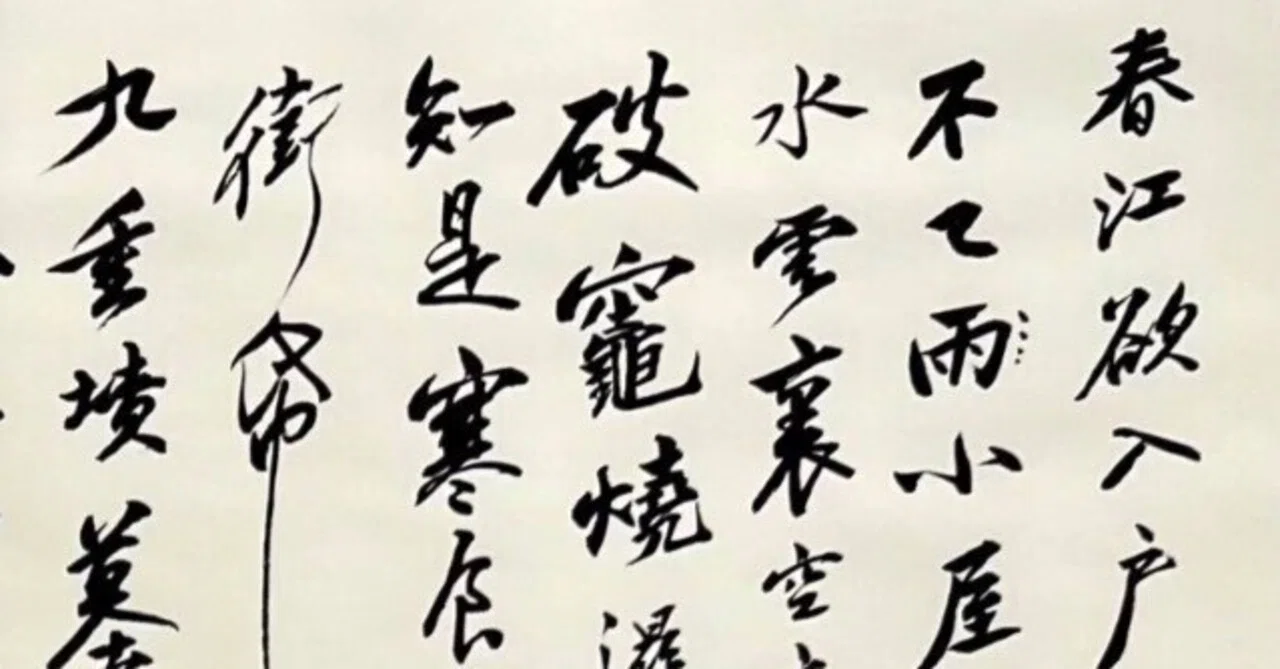 春江欲入户
不已雨小屋
水雲裏空
破竈燒
知是寒食
銜帋
九重墳墓